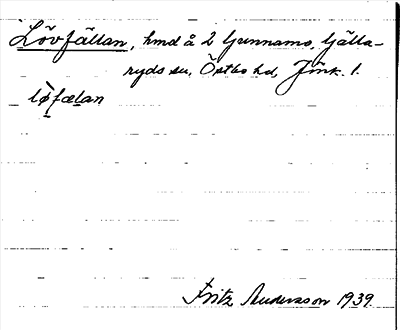 Lövfällan, hmd å 2 Gunnamo, Gälla-
ryds sn, Östbo hd, Jönk. l.
lö̀fælan
Fritz Andersson 1939.